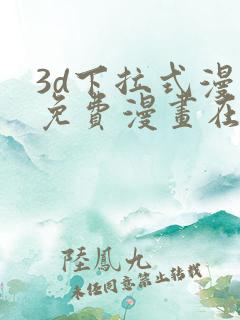 3d下拉式漫
免費漫畫在
陸鳳九
未经同意禁止转载